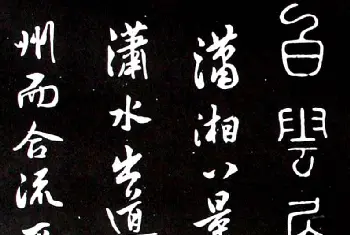 白雲居
瀟湘八景
瀟水出道
州而合流